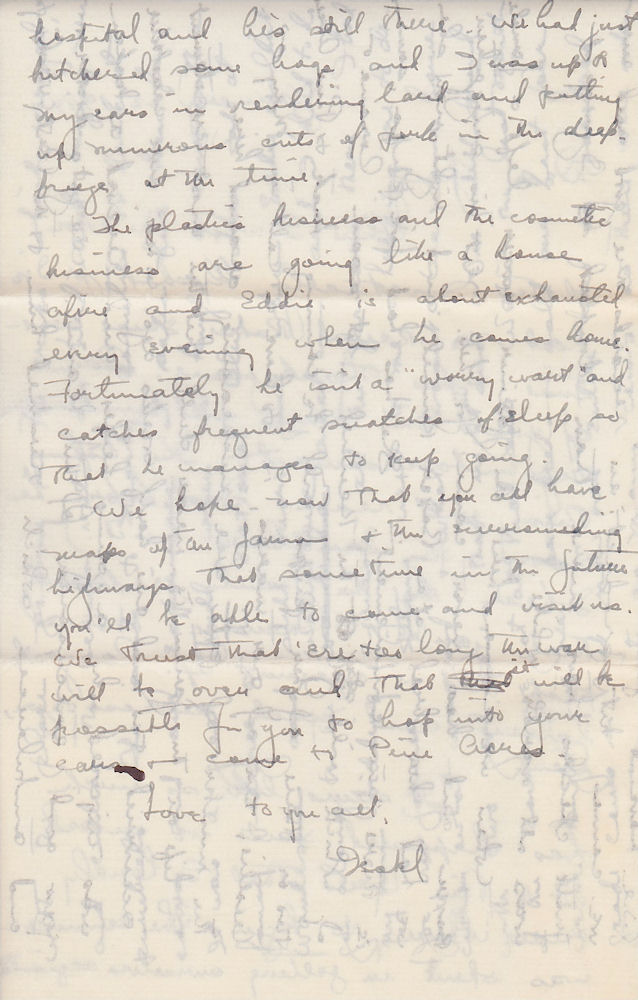 hospital and he's still there. We had just
butchered some hogs and I was up to
my ears in rendering lard and putting
up numerous cuts of pork in the deep-
freeze at the time.
The plastics business and the cosmetic
business are going like a house
afire and Eddie is about exhausted
every evening when he comes home.
Fortunately he isn't a "worry wart" and
catches frequent snatches of sleep so
that he manages to keep going.
We hope now that you all have
maps of the farm & the surrounding
highways that sometime in the future
you'll be able to come and visit us.
We trust that 'ere too long the war
will be over and that it will be
possible for you to hop into your
cars & come to Pine Acres.
Love to you all,